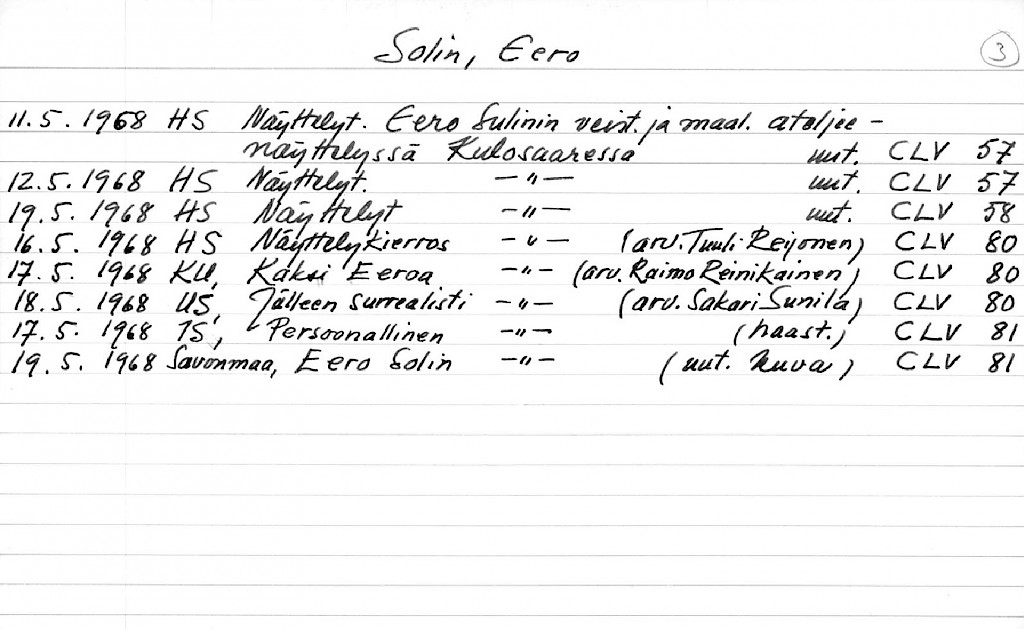 Solin, Eero 3
11.5.1968 HS Näyttelyt. Eero Sulinin veist. ja maal. ateljee-
näyttelyssä Kulosaaressa uut. CLV 57
12.5.1968 HS Näyttelyt. —"— uut. CLV 57
19.5.1968 HS Näyttelyt —"— uut. CLV 58
16.5.1968 HS Näyttelykierros —"— (arv. Tuuli Reijonen) CLV 80
17.5.1968 KU, Kaksi Eeroa —"— (arv. Raimo Reinikainen) CLV 80
18.5.1968 US, Jälleen surrealisti —"— (arv. Sakari Sunila) CLV 80
17.5.1968 IS, Persoonallinen —"— (haast.) CLV 81
19.5.1968 Savonmaa, Eero Solin —"— (uut. kuva) CLV 81